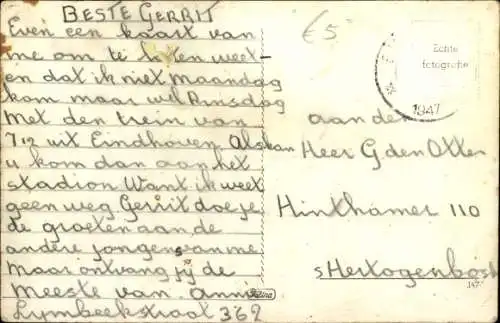 BESTE GERRIT
Even een kaart van
me om te laten weet-
en dat ik niet Maandag
kom maar wel Dinsdag
Met den trein van
7 12 uit Eindhoven Als kan
u kom dan aan het
stadion Want ik weet
geen weg Gerrit doe je
de groeten aan de
andere jongens van me
Maar ontvang jij de
Meeste van Annie
Lymbeekstraat 362
£5
Echte
fotografie
1947
aan den
Heer G den Otter
Hinthamer 110
s Hertogenbosch